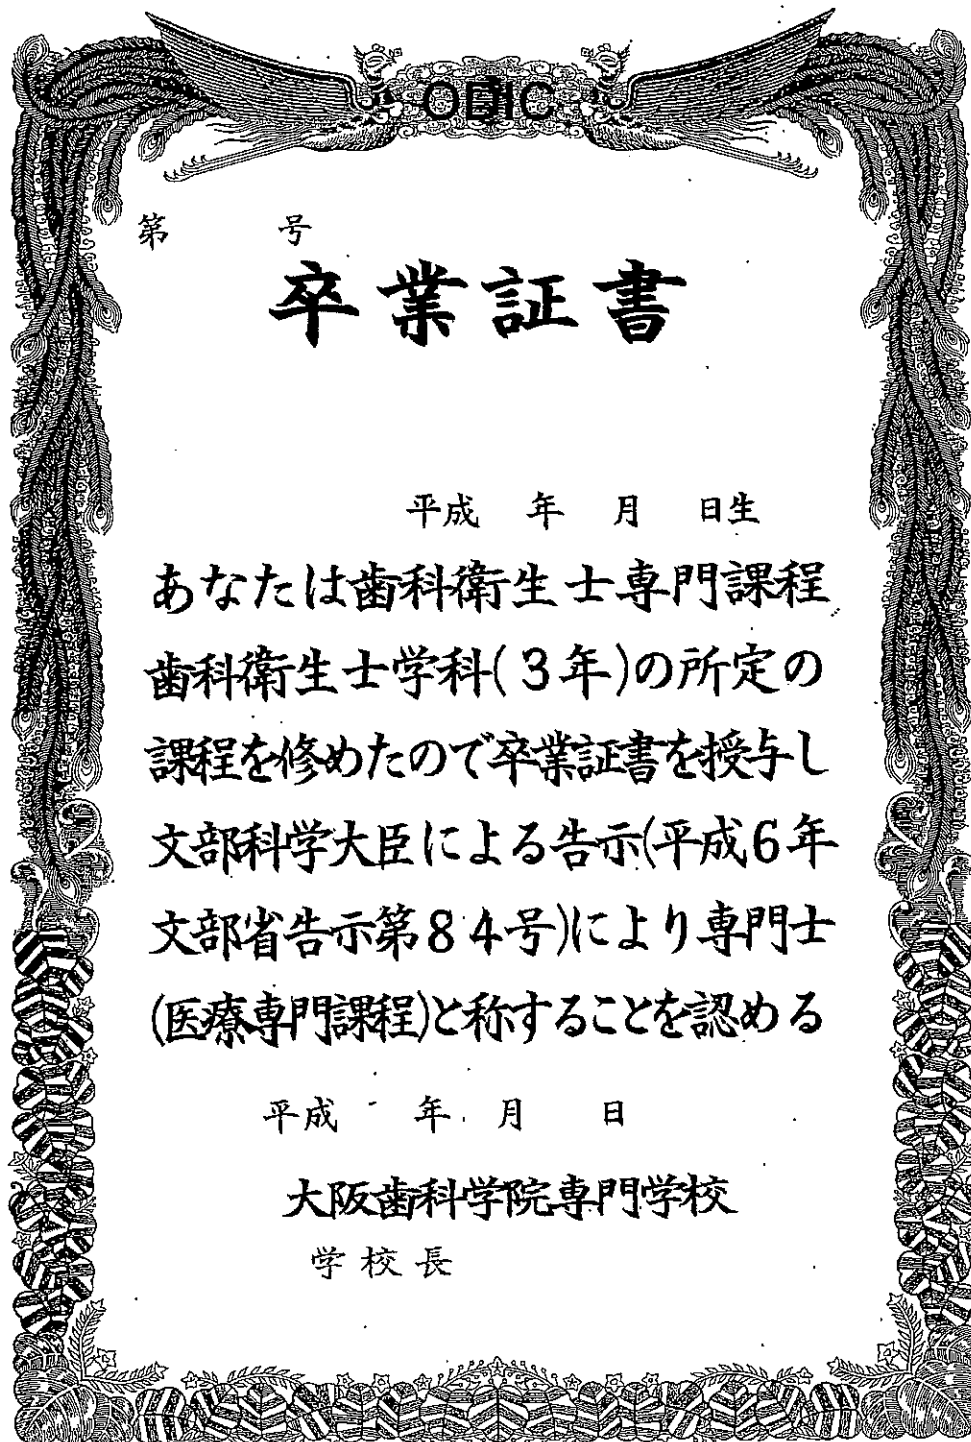 ODIC
第　　　号
卒業証書
平成　年　月　日生
あなたは歯科衛生士専門課程
歯科衛生士学科(3年)の所定の
課程を修めたので卒業証書を授与し
文部科学大臣による告示(平成6年
文部省告示第84号)により専門士
(医療専門課程)と称することを認める
平成　　年　月　　日
大阪歯科学院専門学校
学校長